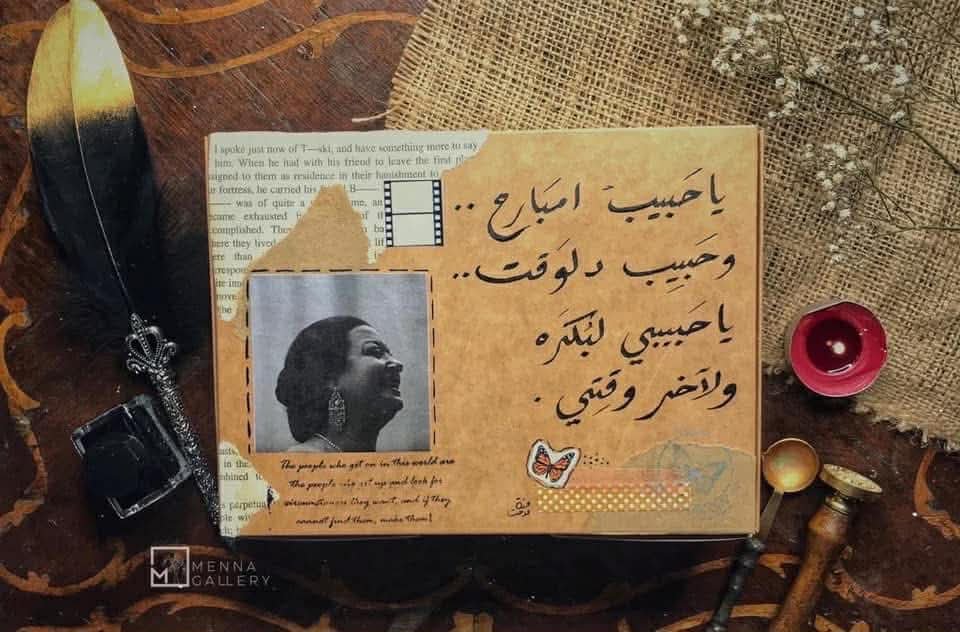 I spoke just now of T—ski, and have something more to say
him. When he had with his friend to leave the first
signed to them as residence in their banishment to
ur fortress, he carried his B—
— was of quite a me, an
ecame exhausted of th
complished. They ba
here they lived lif
ere than
يا حَبيب امبَارح ..
وحَبِيب دلوَقت..
يا حَبيبي لبُكرَه
ولآخر وقتِي .
The people who get on in this world are
the people who get up and look for
circumstances they want, and if they
cannot find them, make them!
in the
perpetua
MENNA
GALLERY